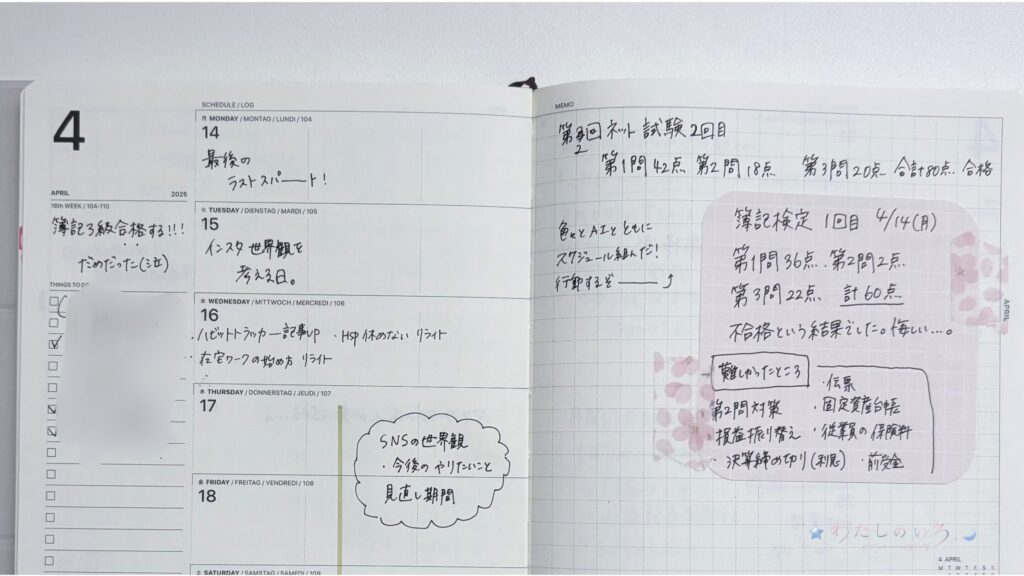 4
APRIL 2025
16th WEEK / 104-110
簿記3級合格する!!!
だめだった(泣)
THINGS TO DO
SCHEDULE / LOG
月 MONDAY / MONTAG / LUNDI / 104
14
最後の
ラストスパート!
火 TUESDAY / DIENSTAG / MARDI / 105
15
インスタ世界観を
考える日。
水 WEDNESDAY / MITTWOCH / MERCREDI / 106
16
・ハビットトラッカー記事up ・HSP休めない リライト
在宅ワークの始め方 リライト
木 THURSDAY / DONNERSTAG / JEUDI / 107
17
SNSの世界観
・今後のやりたいこと
見直し期間
金 FRIDAY / FREITAG / VENDREDI / 108
18
土 SATURDAY / SAMSTAG / SAMEDI / 109
MEMO
第2回 ネット試験2回目
第1問42点 第2問18点 第3問20点 合計80点 合格
色々とAIとともに
スケジュール組んだ!
行動するぞ――
簿記検定 1回目 4/14(月)
第1問36点、第2問2点
第3問22点 計60点
不合格という結果でした。悔しい…。
難しかったところ
・第2問対策
・損益振り替え
・決算締め切り(利息)
・伝票
・固定資産台帳
・従業員の保険料
・前受金
APRIL
わたしのいろ
4 APRIL
M T W T F S S